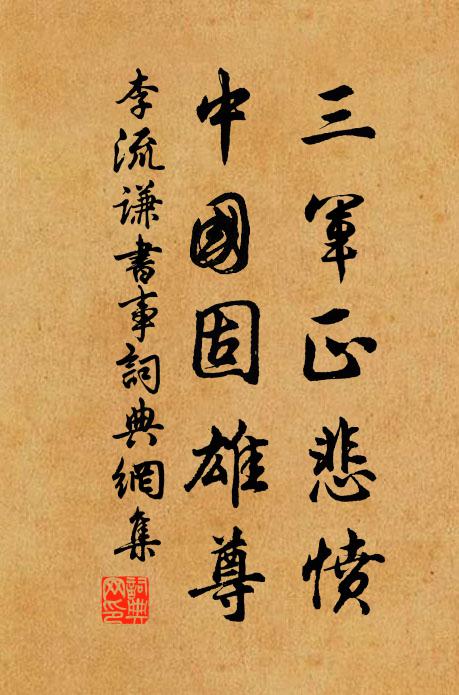 三軍正悲憤
中國固雄尊
李流謙書事詞典網集
詞典網印